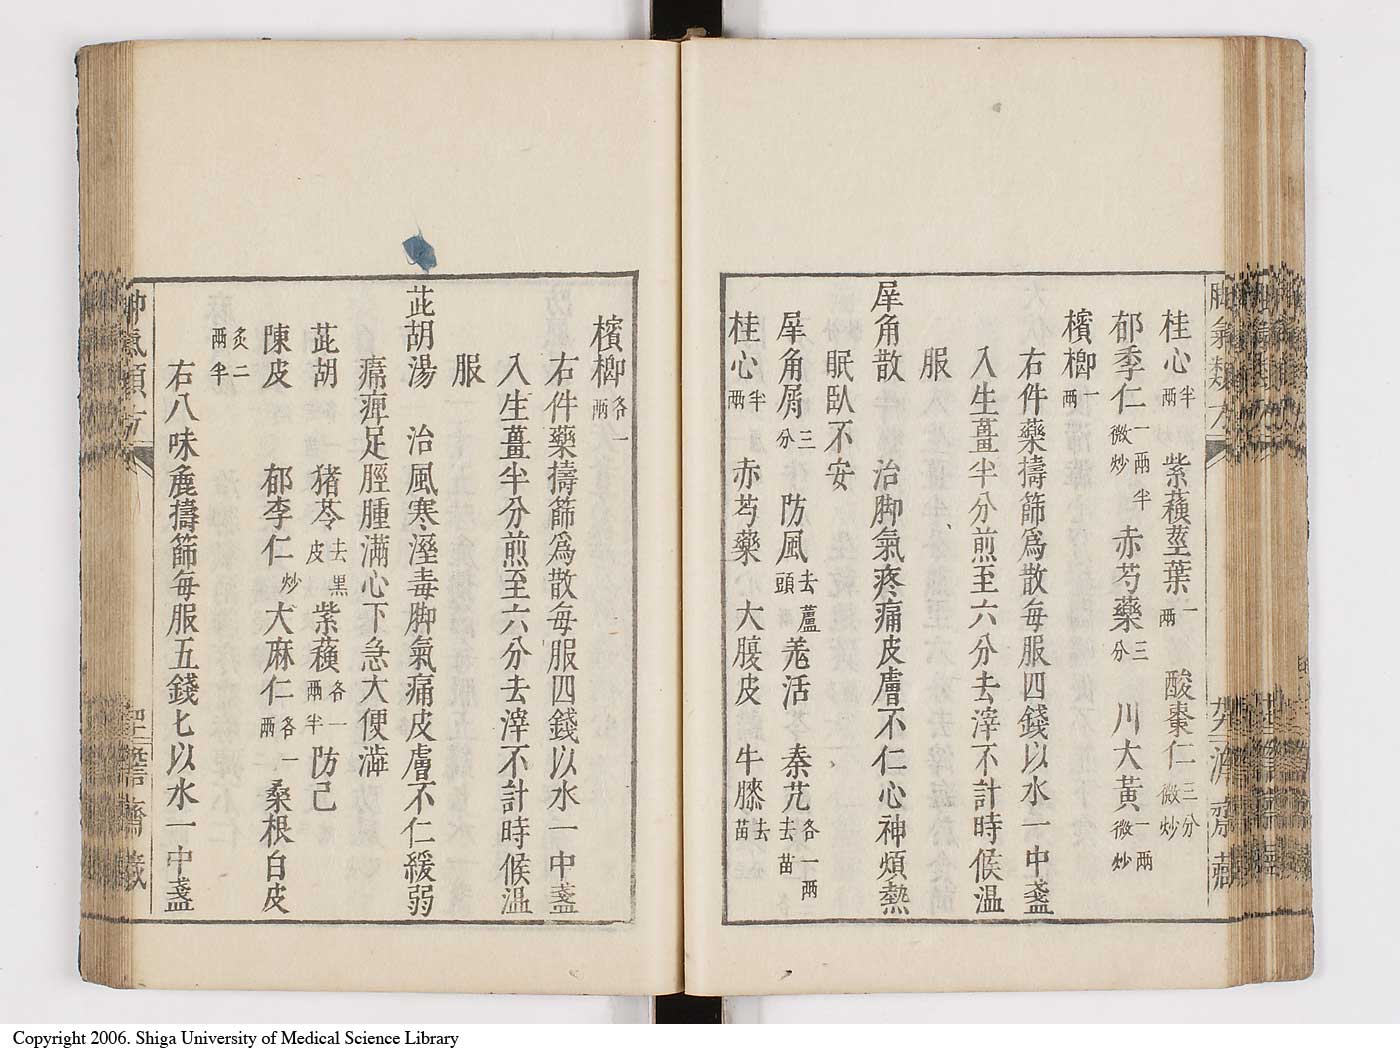 桂心半两 紫蘓莖葉一两 酸棗仁三分微炒
郁季仁一两半微炒 赤芍藥三分 川大黃一两微炒
檳榔一两
右件藥擣篩爲散每服四錢以水一中盞
入生薑半分煎至六分去滓不計時候温
服
犀角散 治脚氣疼痛皮膚不仁心神煩熱
眠臥不安
犀角屑三分 防風去蘆頭 羗活 秦艽去苗各一两
桂心半两 赤芍藥 大腹皮 牛膝去苗
檳榔各一两
右件藥擣篩爲散每服四錢以水一中盞
入生薑半分煎至六分去滓不計時候温
服
茈胡湯 治風寒溼毒脚氣痛皮膚不仁緩弱
痛痺足脛腫滿心下急大便澁
茈胡 猪苓去黑皮 紫蘓各一两半 防己
陳皮 郁李仁炒 大麻仁各一两 桑根白皮
炙二两半
右八味麁擣篩每服五錢匕以水一中盞
脚氣類方
聖濟齋藏
Copyright 2006. Shiga University of Medical Science Library